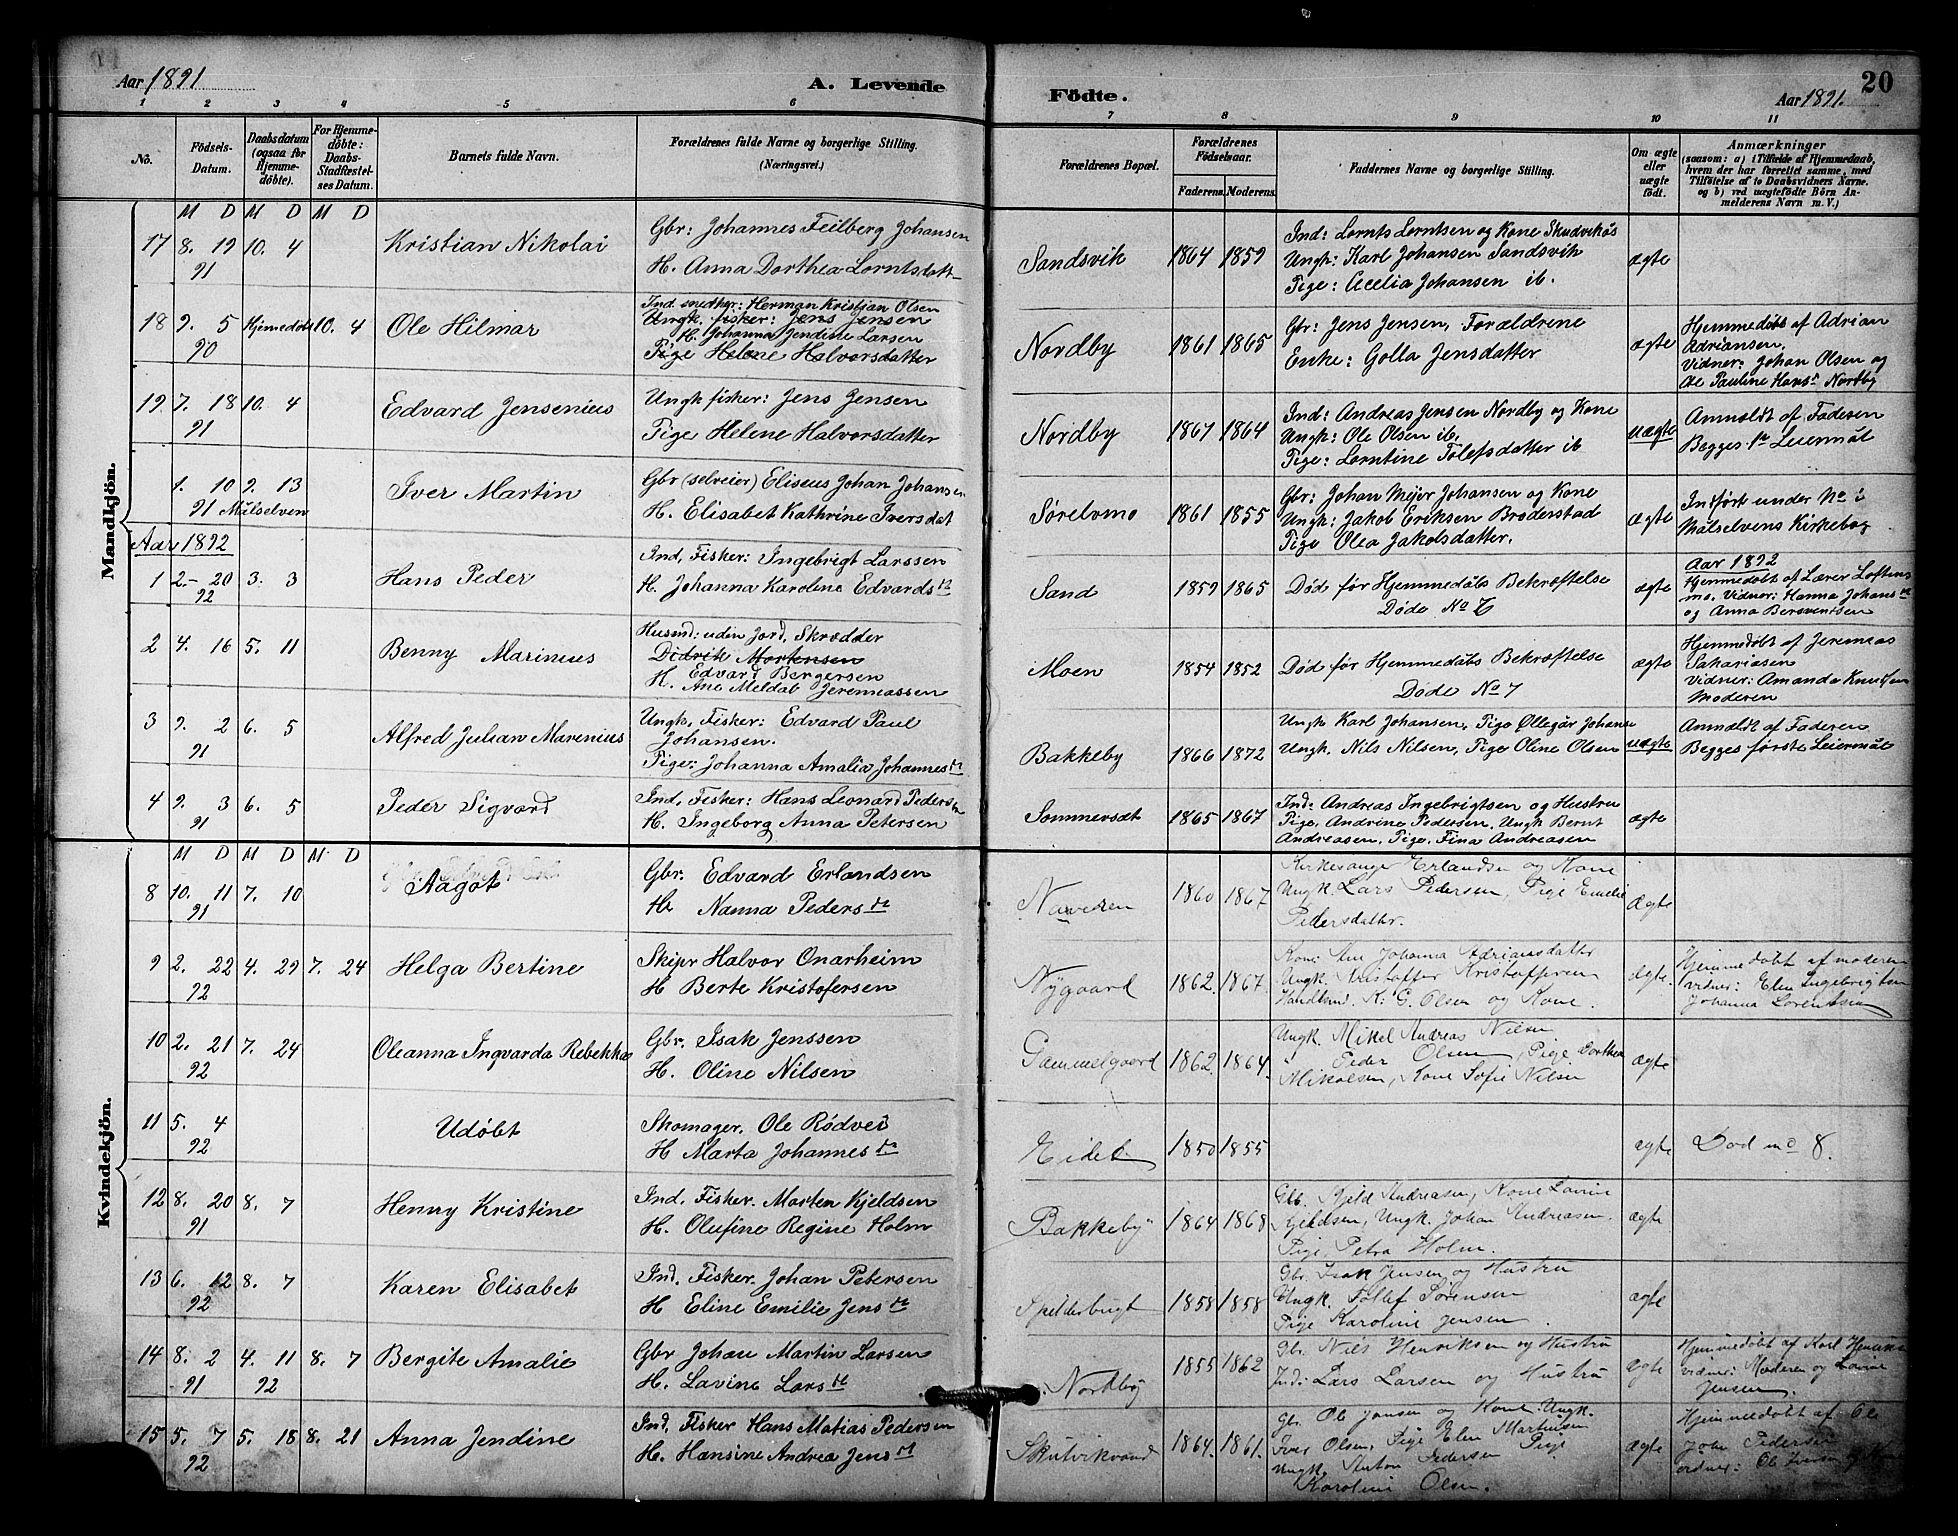 Aar 1891
A. Levende
Födte.
Aar 1891.
20
1 2 3 4 5 6 7 8 9 10 11
No.
Födsels-Datum.
Daabsdatum (ogsaa for Hjemme-döbte).
For Hjemme-döbte: Daabs-Stadfæstel-ses Datum.
Barnets fulde Navn.
Forældrenes fulde Navne og borgerlige Stilling.
(Næringsvei.)
Forældrenes Bopæl.
Forældrenes Födselsaar.
Faderens. Moderens.
Faddernes Navne og borgerlige Stilling.
Om ægte eller uægte födt.
Anmærkninger
(saasom: a) i Tilfælde af Hjemmedaab, hvem der har forrettet samme, med Tilföielse af to Daabsvidners Navne. og b) ved uægtefödte Börn Anmelderens Navn m. V.)
Mandkjön.
M D M D M D
17 8. 19 10. 4
91
Kristian Nikolai
Gbr: Johannes Feilberg Johansen
H. Anna Dorthea Lorntsdatt
Sandsvik 1864 1859
Ind: Lornts Lorntsen og Kone Skudvikås
Ungk: Karl Johansen Sandsvik
Pige: Cecelia Johansen ib.
ægte
18 9. 5 Hjemmedøbt 10. 4
90
Ole Hilmar
Ind. snedker: Herman Kristian Olsen
Ungk. fisker: Jens Jensen
H. Johanna Jendine Larsen
Pige Helene Halvorsdatter
Nordby 1861 1865
Gbr: Jens Jensen, Forældrene
Enke: Golla Jensdatter
ægte
Hjemmedøbt af Adrian
Adriansen.
Vidner: Johan Olsen og
Pauline Hans Nordby
19 7. 18 10. 4
91
Edvard Jensenius
Ungk fisker: Jens Jensen
Pige Helene Halvorsdatter
Nordby 1867 1864
Ind: Andreas Jensen Nordby og Kone
Ungk: Ole Olsen ib.
Pige: Lorntine Tolefsdatter ib
uægte
Anmeldt af Faderen
Begges 1ste Leiermål
1. 10 2. 13
91 Målselven
Iver Martin
Gbr (selveier) Eliseus Johan Johansen
H. Elisabet Kathrine Iversdat
Sørelvmo 1861 1855
Gbr: Johan Mejer Johansen og Kone
Ungk: Jakob Eriksen Broderstad
Pige Olea Jakobsdatter.
ægte
Indført under No i
Målselvens Kirkebog
Aar 1892
1 2.- 20 3. 3
92
Hans Peder
Ind, Fisker: Ingebrigt Larssen
H. Johanna Karoline Edvardsdt
Sand 1859 1865
Død før Hjemmedåbs Bekræftelse
Døde No 6
ægte
Aar 1892
Hjemmedøbt af Lærer Loftens
mo. Vidner: Hanna Johansdt
og Anna Bersventsen
2 4. 16 5. 11
Benny Marinius
Husmd: uden Jord, Skrædder
Didrik Mortensen
Edvard Bergersen
H. Ane Meldab Jeremeassen
Moen 1854 1852
Død før Hjemmedåbs Bekræftelse
Døde No 7
ægte
Hjemmedøbt af Jeremeas
Sakariasen
Vidner: Amanda Knutsen
Moderen
3 9. 2 6. 5
91
Alfred Julian Marenius
Ungk, Fisker: Edvard Paul
Johansen.
Pige: Johanna Amalia Johannesdt
Bakkeby 1866 1872
Ungk Karl Johansen, Pige Øllegår Johanse
Ungk, Nils Nilsen, Pige Oline Olsen
uægte
Anmeldt af Faderen
Begges første Leiermål
4 9. 3 6. 5
91
Peder Sigvard
Ind, Fisker: Hans Leonard Peders
H. Ingeborg Anna Petersen
Sommersæt 1865 1867
Ind: Andreas Ingebrigtsen og Hustru
Pige, Andrine Pedersen, Ungk Bernt
Andreasen, Pige, Fina Andreasen
ægte
Kvindekjön.
M D M D M D
8 10. 11 7. 10
91
Aagot
Gbr. Edvard Erlandsen
H. Nanna Pedersdt
Naveren 1860 1867
Kirkesanger Erlandsen og Kone
Ungk. Lars Pedersen, Pige Emelie
Pedersdatter.
Ægte
9 2. 22 4. 29 7. 24
92
Helga Bertine
Skipr Halvor Onarheim
H Berte Kristofersen
Nygaard 1862. 1867.
Kone: Ane Johanna Adriansdatter
Ungk. Kristoffer Kristoffersen
Handlsmd. K. G. Olsen og Kone.
ægte.
Hjemmedøbt af moderen
vidner: Elen Ingebrigtsen
Johanna Lorentsen
10 2. 21 7. 24
92
Oleanna Ingvarda Rebekka
Gbr. Isak Jenssen
H. Oline Nilsen
Gammelgaard 1862. 1864.
Ungk. Mikel Andreas Nilsen
" Peder Olsen, Pige Dorthea
Mikalsen, Kone Sofie Nilsen
ægte
11 5. 4
92
Udøbt
Skomager. Ole Rödvei
H Marta Johannesdt
Eidet 1850 1855
ægte
Död no 8.
12 8. 20 8. 7
91
Henny Kristine
Ind. Fisker. Morten Kjeldsen
H. Olufine Regine Holm
Bakkeby 1864 1868
Gbr. Kjeld Andreasen, Kone Lavine
Kjeldsen, Ungk. Johan Andreasen.
Pige, Petra Holm.
ægte
13 6. 12 8. 7
92
Karen Elisabet
Ind. Fisker. Johan Petersen
H Eline Emilie Jensdt
Spildersbugt 1858 1858
Gbr. Isak Jensen og Hustru
Ungk. Tollef Sörensen
Pige Karoline Jensen.
ægte
14 8. 2 4. 11 8. 7
91 92
Bergite Amalie
Gbr Johan Martin Larsen
H. Lavine Larsdt
Nordby 1855 1862
Gbr. Nils Henriksen og Hustru
Ind: Lars Larsen og Hustru
ægte
Hjemmedøbt af Karl Henriks
vidner: Moderen og Lavine
Jensen.
15 5. 7 5. 18 8. 21
92
Anna Jendine
Ind, Fisker Hans Matias Pedersen
H. Hansine Andrea Jensdt
Skutvikvand 1864. 1861.
Gbr. Ole Jansen og Kone. Ungk.
Iver Olsen, Pige Elen Martinsen
Ungk. Anton Pedersen Pige
Karoline Olsen.
ægte
Hjemmedøbt af Ole
Joh. Pedersen
vidner: Ole Iversen og